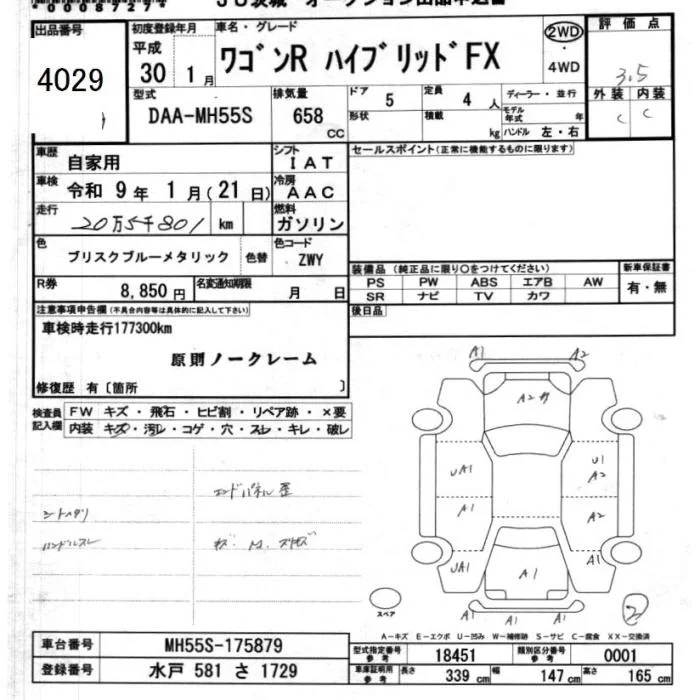 00087277
JU茨城 オークション出品申込書
出品番号
4029
初度登録年月
平成
30 1月
車名・グレード
ワゴンR ハイブリッドFX
2WD
・
4WD
評価点
3.5
外装 内装
C C
型式
DAA-MH55S
排気量
658
CC
ドア
5
形状
定員
4 人
積載
kg
ディーラー・並行
モデル年式 年
ハンドル 左・右
車歴
自家用
シフト
IAT
車検
令和 9年 1月(21日)
冷房
AAC
走行
20万5千801 km
燃料
ガソリン
色
ブリスクブルーメタリック
色替
色コード
ZWY
R券
8,850円
名変通知期限
月 日
セールスポイント(正常に機能するものに限ります)
装備品(純正品に限り○をつけてください)
新車保証書
PS PW ABS エアB AW
有・無
SR ナビ TV カワ
後日品
注意事項申告欄(不具合内容等は具体的に記入して下さい)
車検時走行177300km
原則ノークレーム
修復歴 有〔箇所 〕
検査員記入欄
FW キズ・飛石・ヒビ割・リペア跡・×要
内装 キズ・汚レ・コゲ・穴・スレ・キレ・破レ
エンドパネル歪
シートヘタリ
ハンドルスレ
A1 A2
A2
UA1
A1
UA1
U1
A2
A2
A1
A1
A1 A1 A1
スペア
2
A-キズ E-エクボ U-凹み W-補修跡 S-サビ C-腐食 XX-交換済
車台番号
MH55S-175879
登録番号
水戸 581 さ 1729
型式指定番号
参考
18451
類別区分番号
参考
0001
車庫証明用
参考
長さ 339 cm 幅 147 cm 高さ 165 cm